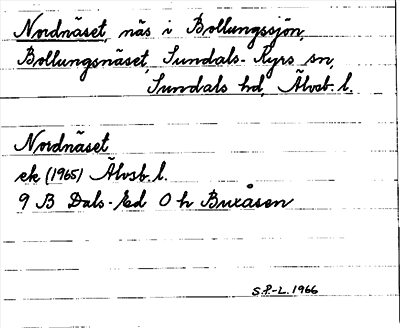 Nordnäset, näs i Bollungssjön,
Bollungsnäset, Sundals-Ryrs sn,
Sundals hd, Älvsb. l.
Nordnäset
ek (1965) Älvsb. l.
9 B Dals-Ed 0 h Buxåsen
S.P.-L. 1966